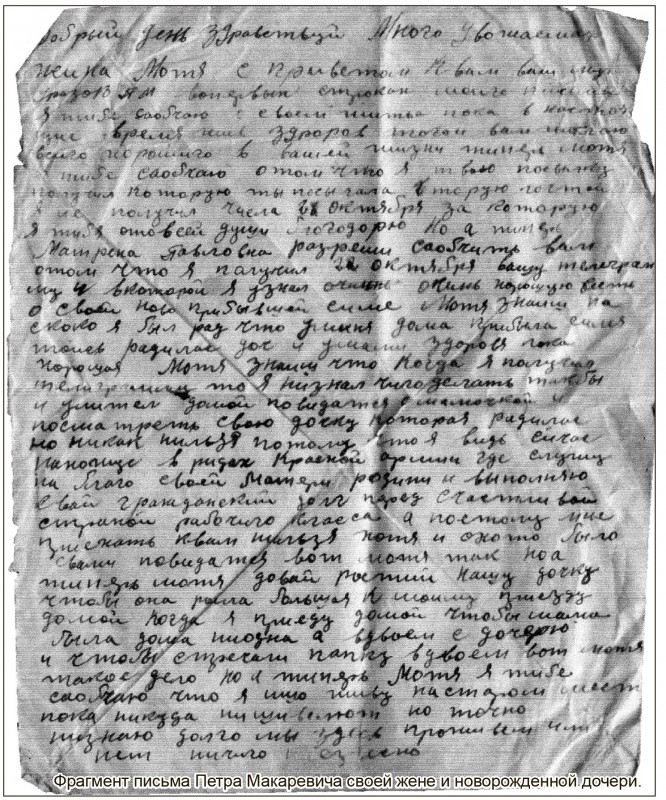 добрый день здравствуй много уважаемая
жена Мотя с приветом к вам ваш муж
вопервых строках моего письма
я тибе саобчаю о своей пока в настоя
щие время жив здоров того и вам желаю
всиго хорошиго в вашей жизни типер мотя
я тибе саобчаю отом что я твою посылку
получил которую ты посылала вторую
я не получил числа 21 октября за которую
я тибя ототвсей души благодорю но а типер
Матрена Павловна разреши саобчить вам
отом что я палучил 22 октября вашу телеграм
му в вкоторой я узнал очинь очинь хорошую весть
о своей ново прибывшей симе Мотя знаиш на
скоко я был рад что уминя дома прибыла симя
тоись радилас доч и умами здоровя пока
хорошая Мотя знаиш что когда я палучил
телиграмму то я низнал чиго делать так бы
и улител домой повидатся смамочкой и
посматреть свою дочку которая радилас
но никак нильзя потому что я видь сичас
нахожус в рядах Красной армии где служу
на благо своей Матери родини и выполняю
свой гражданский долг перед счастливой
страной рабочиго класса а поетому мне
приехать квам нильзя хотя и охото было
свами повидатся вот мотя так но а
типерь мотя довай ростий нашу дочку
чтобы она росла большая к моиму приезду
домой когда я приеду домой чтобы мама
была дома ниодна а вдвоем с дочерю
и чтобы стречали папку вдвоем вот мотя
такое дело но а типерь Мотя я тибе
саобчаю что я ищо живу настаром мест
пока никуда ни но точно
низнаю долго мы здесь проживем или
нет ничиго
Фрагмент письма Петра Макаревича своей жене и новорожденной дочери.